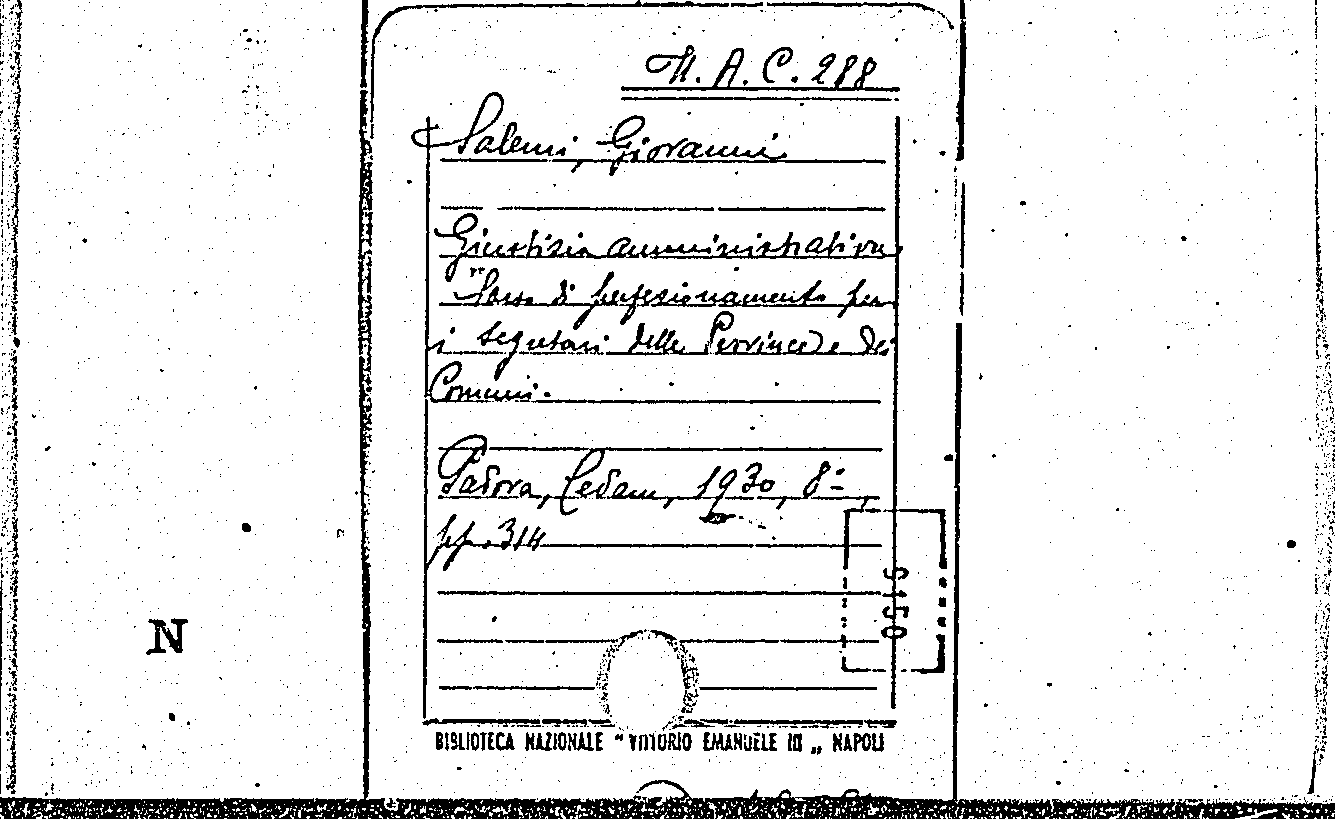 N. A. C. 288
Salemi, Giovanni
Giustizia amministrativa
di perfezionamento per
i segretari delle Provincie e dei
Comuni.
Padova, Cedam, 1930, 8°,
pp. 314
N
BIBLIOTECA NAZIONALE "VITTORIO EMANUELE III„ NAPOLI